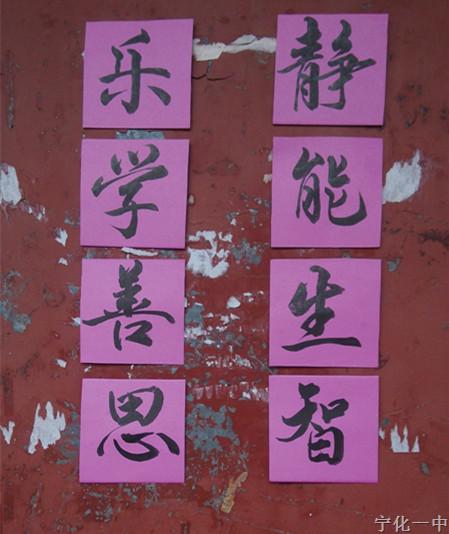 静能生智
乐学善思
宁化一中